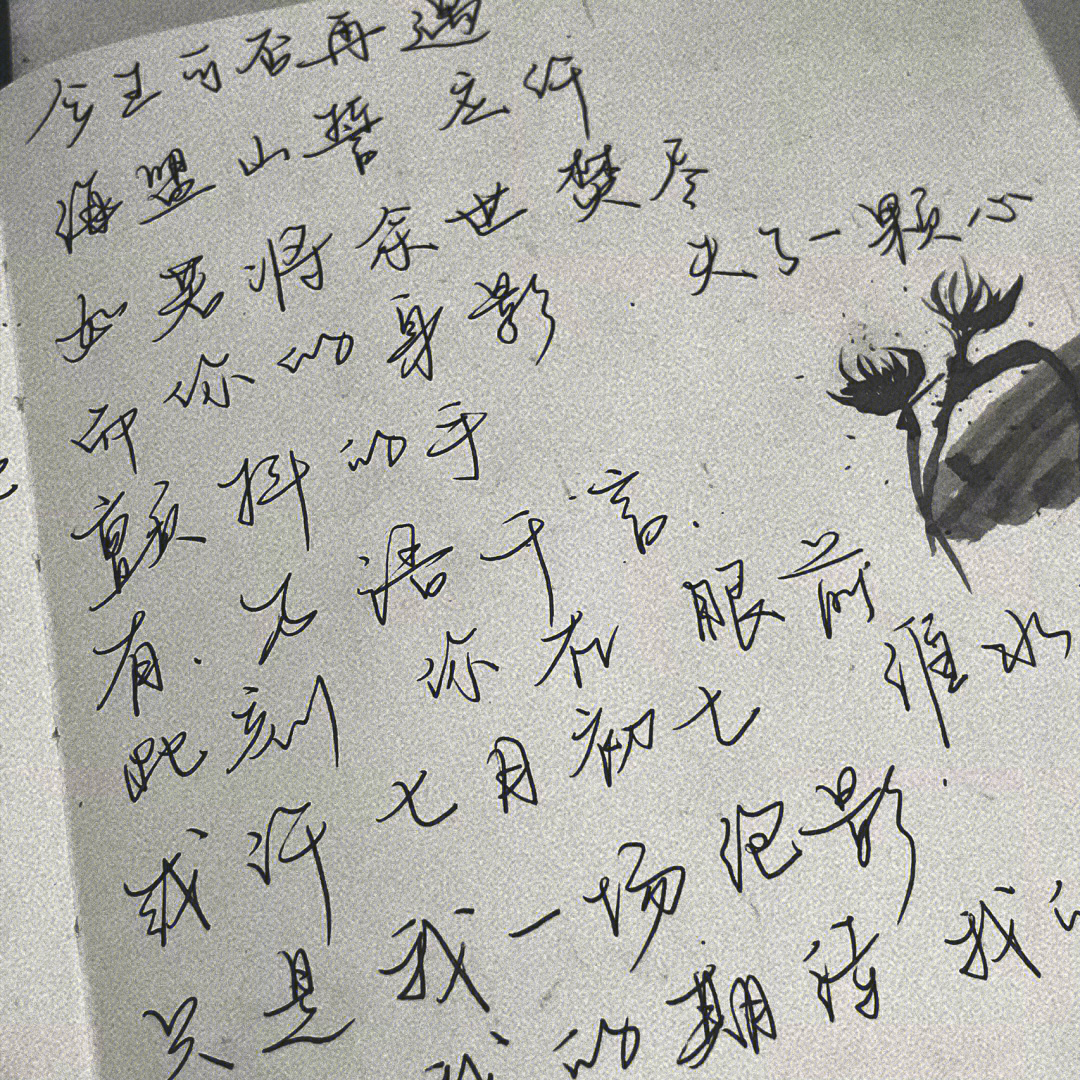 今生可否再遇
海盟山誓
如若将余世焚尽
你的身影 失了一颗心
颤抖的手
有.万语千言.
此刻 你在眼前
或许 七月初七 淮水
只是我一场泡影
我的期待 我